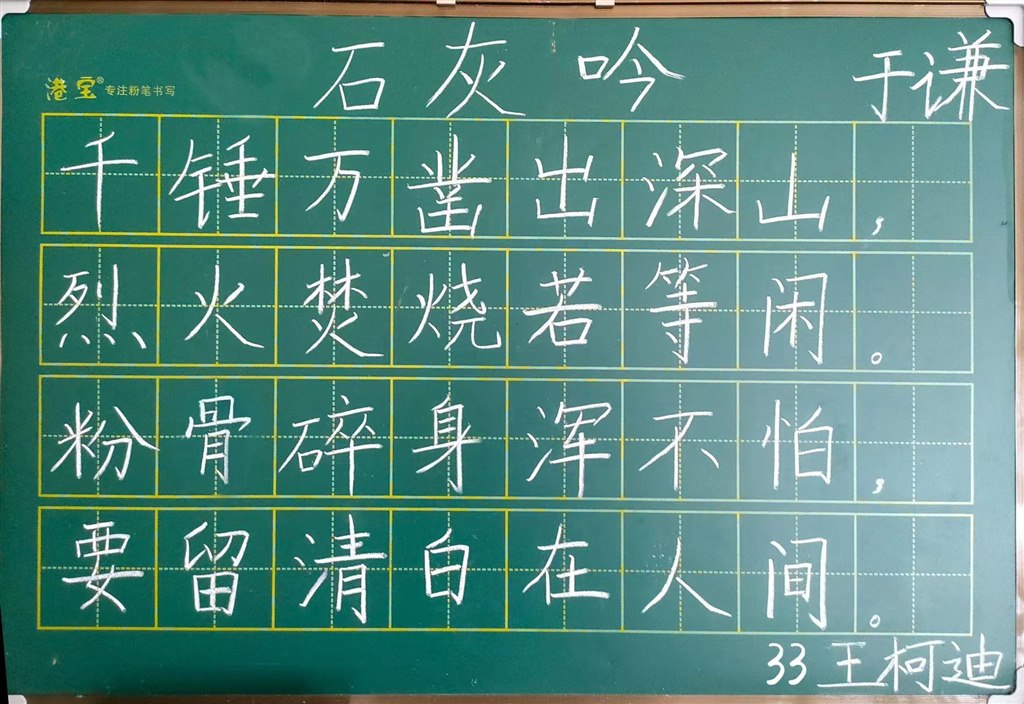 石灰吟 于谦
港宝® 专注粉笔书写
千锤万凿出深山,
烈火焚烧若等闲。
粉骨碎身浑不怕,
要留清白在人间。
33 王柯迪